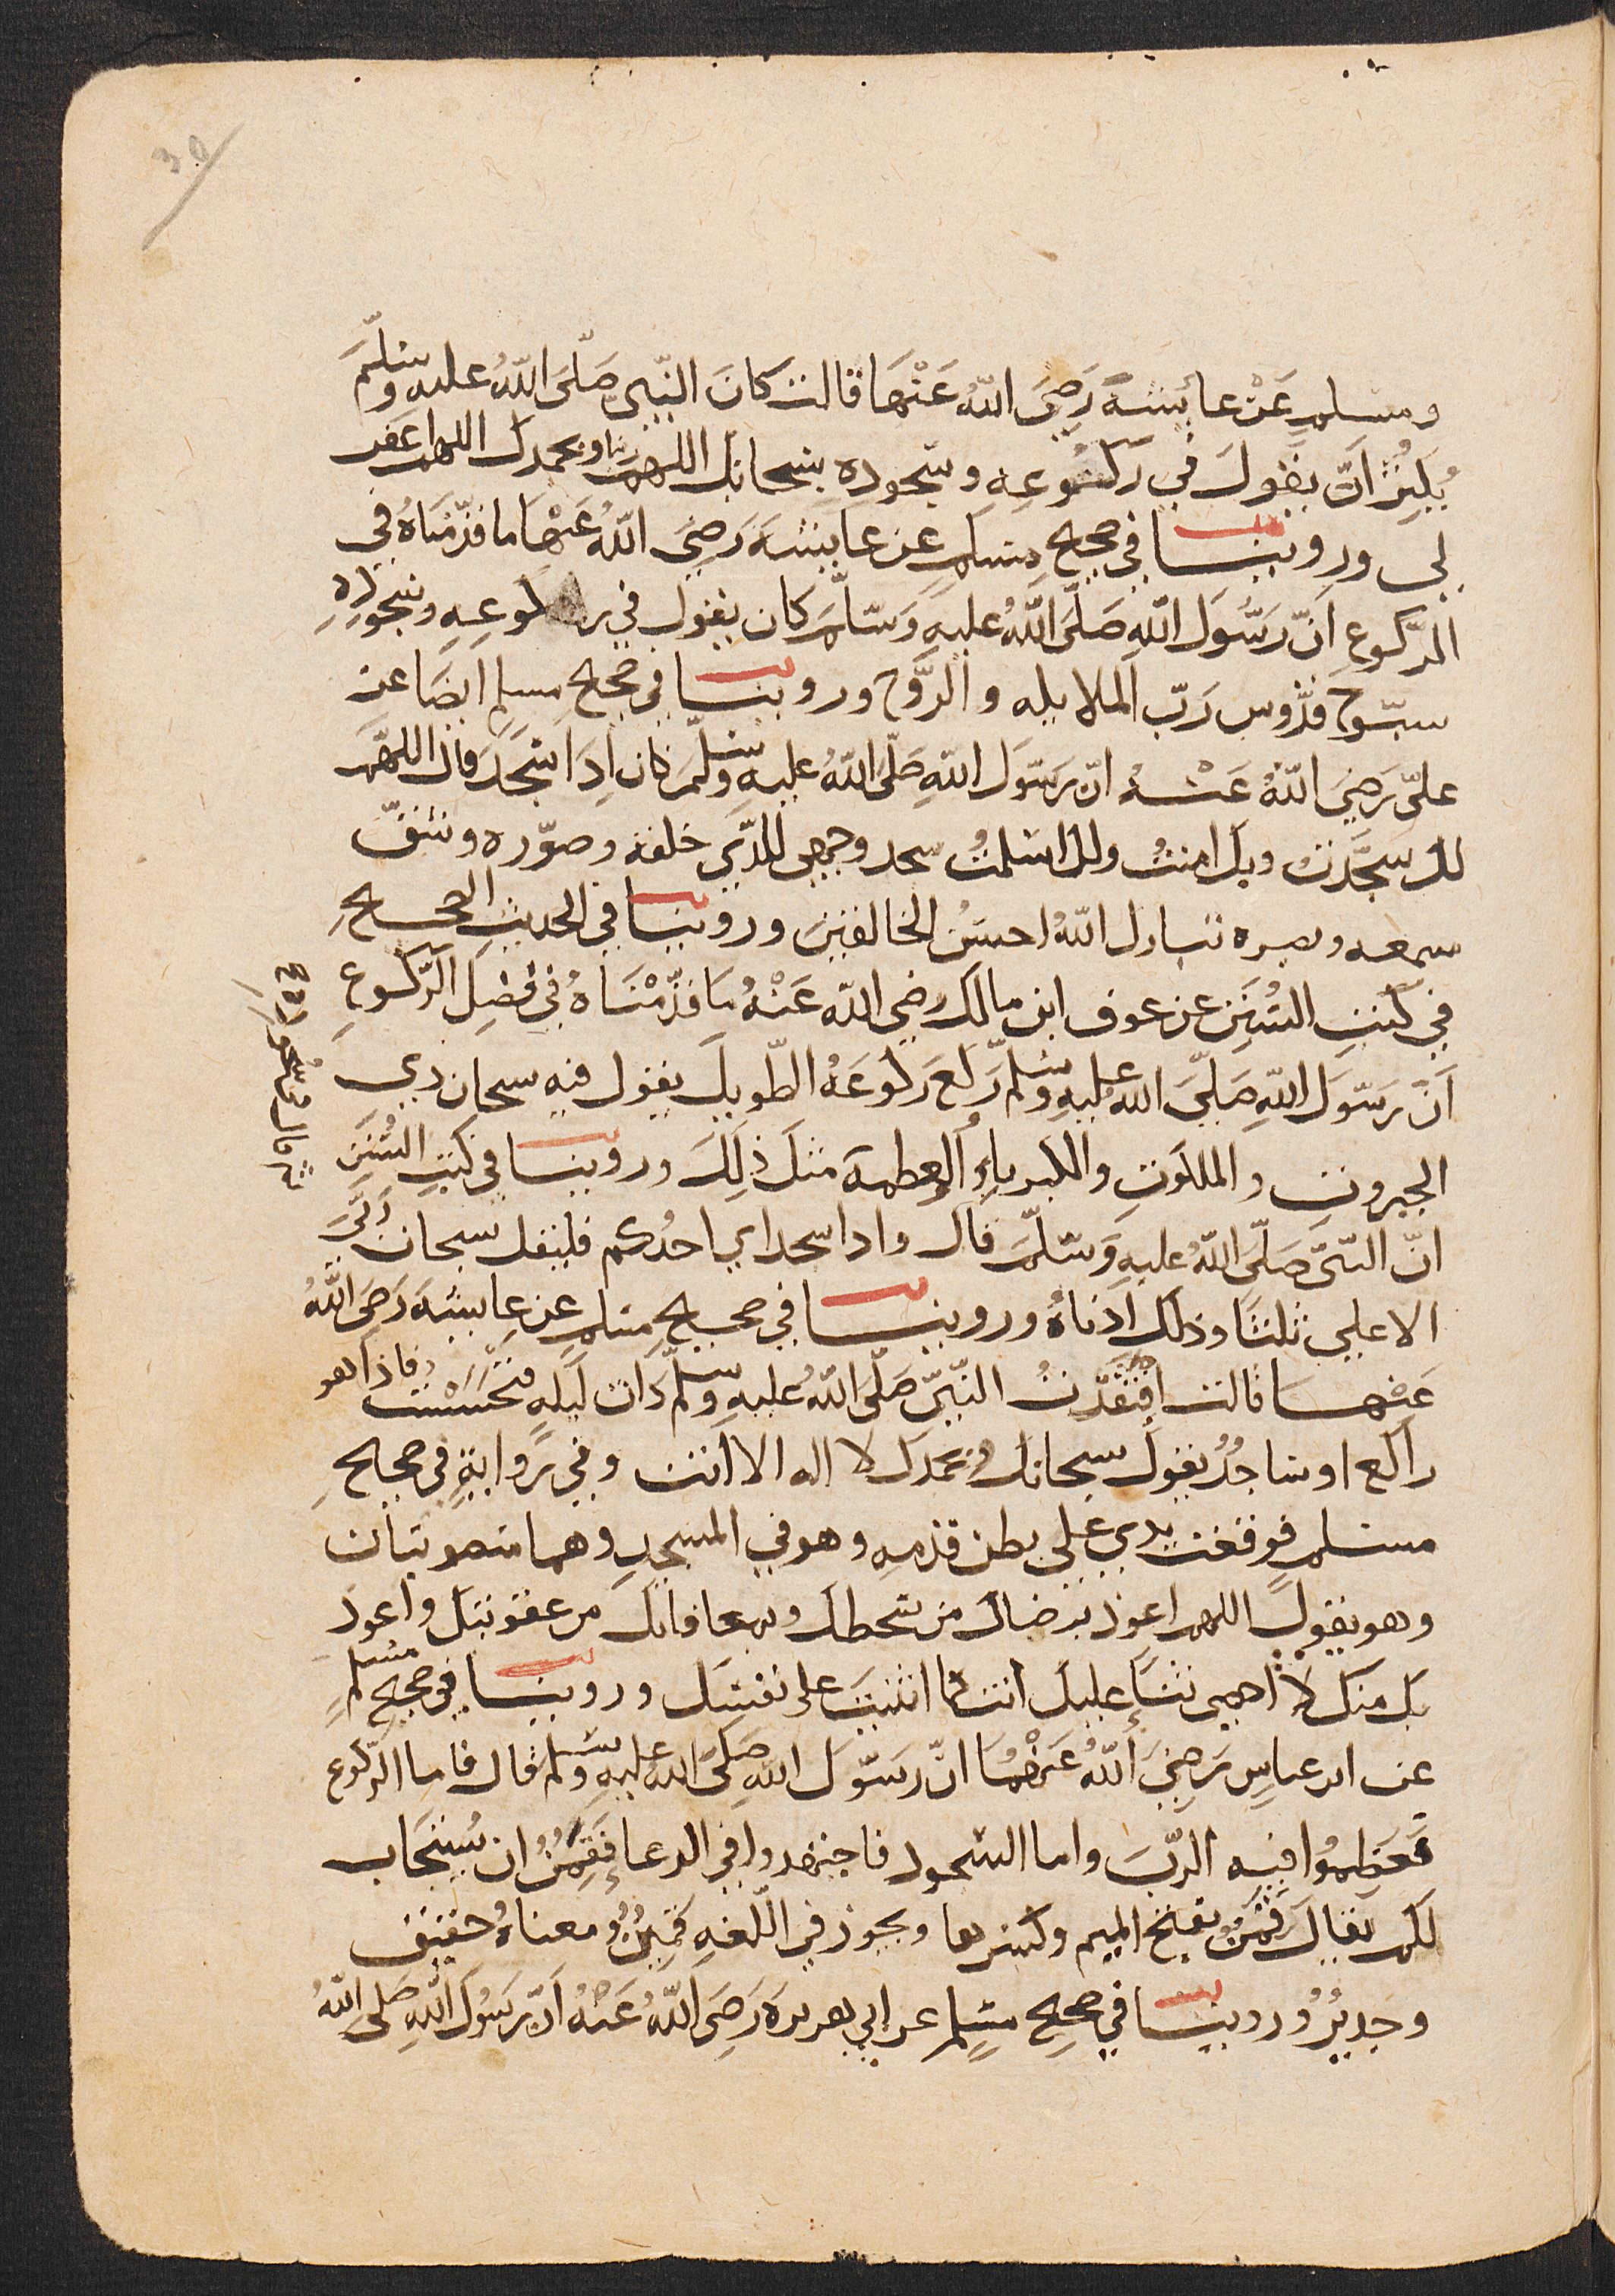 30
ومسلم عَنْ عائشةَ رَضِيَ اللّهُ عَنْهَا قالت كانَ النّبي صَلّى اللّهُ عليه وسَلّمَ
يُكثِرُ اَنْ يقولَ في ركُوعِهِ وسجودِهِ سبحانك اللهمّ ربنا وبحمدك اللهم اغفر
لى وروينا في صحيح مسلم عن عايشةَ رَضِيَ اللّهُ عَنْهَا ما قدّمْناهُ في
الرّكوعِ اَنّ رَسُولَ اللّهِ صَلّى اللّهُ عليهِ وَسَلّمَ كان يقول في ركوعِهِ وسجودِهِ
سبّوح قدّوس رَبّ الملايكه والرّوح وروينا في صحيح مسلم ايضًا عن
علىّ رَضِيَ اللّهُ عَنْهُ انّ رَسُولَ اللّهِ صَلّى اللّهُ عليهِ وسَلّمَ كان اِذَا سَجَدَ قال اللهمّ
لك سَجَدْتُ وبك امنتُ ولك اسلمتُ سجد وجهي للّذي خلقه وصوّره وشقّ
سمعه وبصره تبارك اللّهُ احسَنُ الخالقينَ وروينا في الحديثِ الصحيحِ
في كتبِ السُنَنِ عن عوف ابن مالك رضي اللّه عَنْهُ مَا قدّمْنَاهُ في فصلِ الرّكوعِ
اَنّ رَسُولَ اللّهِ صَلّى اللّه عليهِ وسَلّم رَكعَ رَكوعَهُ الطّويلَ يقول فيهِ سبحان ذي
الجبروت والملكوتِ والكبرياءِ والعظمة
ثم قال في سجوده
مثلَ ذلِكَ وروينا في كتبِ السُنَنِ
انّ النبيّ صَلّى اللّهُ عليهِ وَسَلّمَ قال واذا سجد اي احدُكم فليقل سبحان ربّيَ
الاعلي ثلثًا وذلك اَدْناهُ وروينا في صحيح مسلم عن عايشةَ رَضِيَ اللّهُ
عَنْها قالت افتقدْتُ النّبيّ صَلّى اللّهُ عليهِ وسَلّم ذات ليلهٍ فتحَسّسْتُ فاذا هو
راكع او ساجدٌ يقول سبحانك وبحمدك لا اله الا انت وفي روايةٍ في صحيحِ
مسلم فوقعت يدي على بطن قدمهِ وهو في المسجدِ وهما منصوبتان
وهو يقول اللهم اعوذ برضاك من سخطك وبمعافاتك من عقوبتك واعوذ
بك منك لا احصي ثناءً عليك انت كما اثنيتَ على نفسك وروينا في صحيح مسلم
عن ابن عباسٍ رَضِيَ اللّهُ عَنْهُمَا انّ رَسُولَ اللّهِ صَلّى اللّه عليهِ وسَلّم قال فاما الرّكوع
فعَظّمُوا فيهِ الرّبّ واما السّجود فاجتهدوا في الدعاء فَقَمِنٌ ان يُستجَاب
لكم يقال قمَن بفتح الميم وكسرها ويجوز في اللّغهِ قمِينٌ ومعناهُ حقيق
وجَديرٌ وروينا في صحيح مسلم عن ابي هريرةَ رَضِيَ اللّهُ عَنْهُ انّ رَسُولَ اللّهِ صَلى اللّهُ